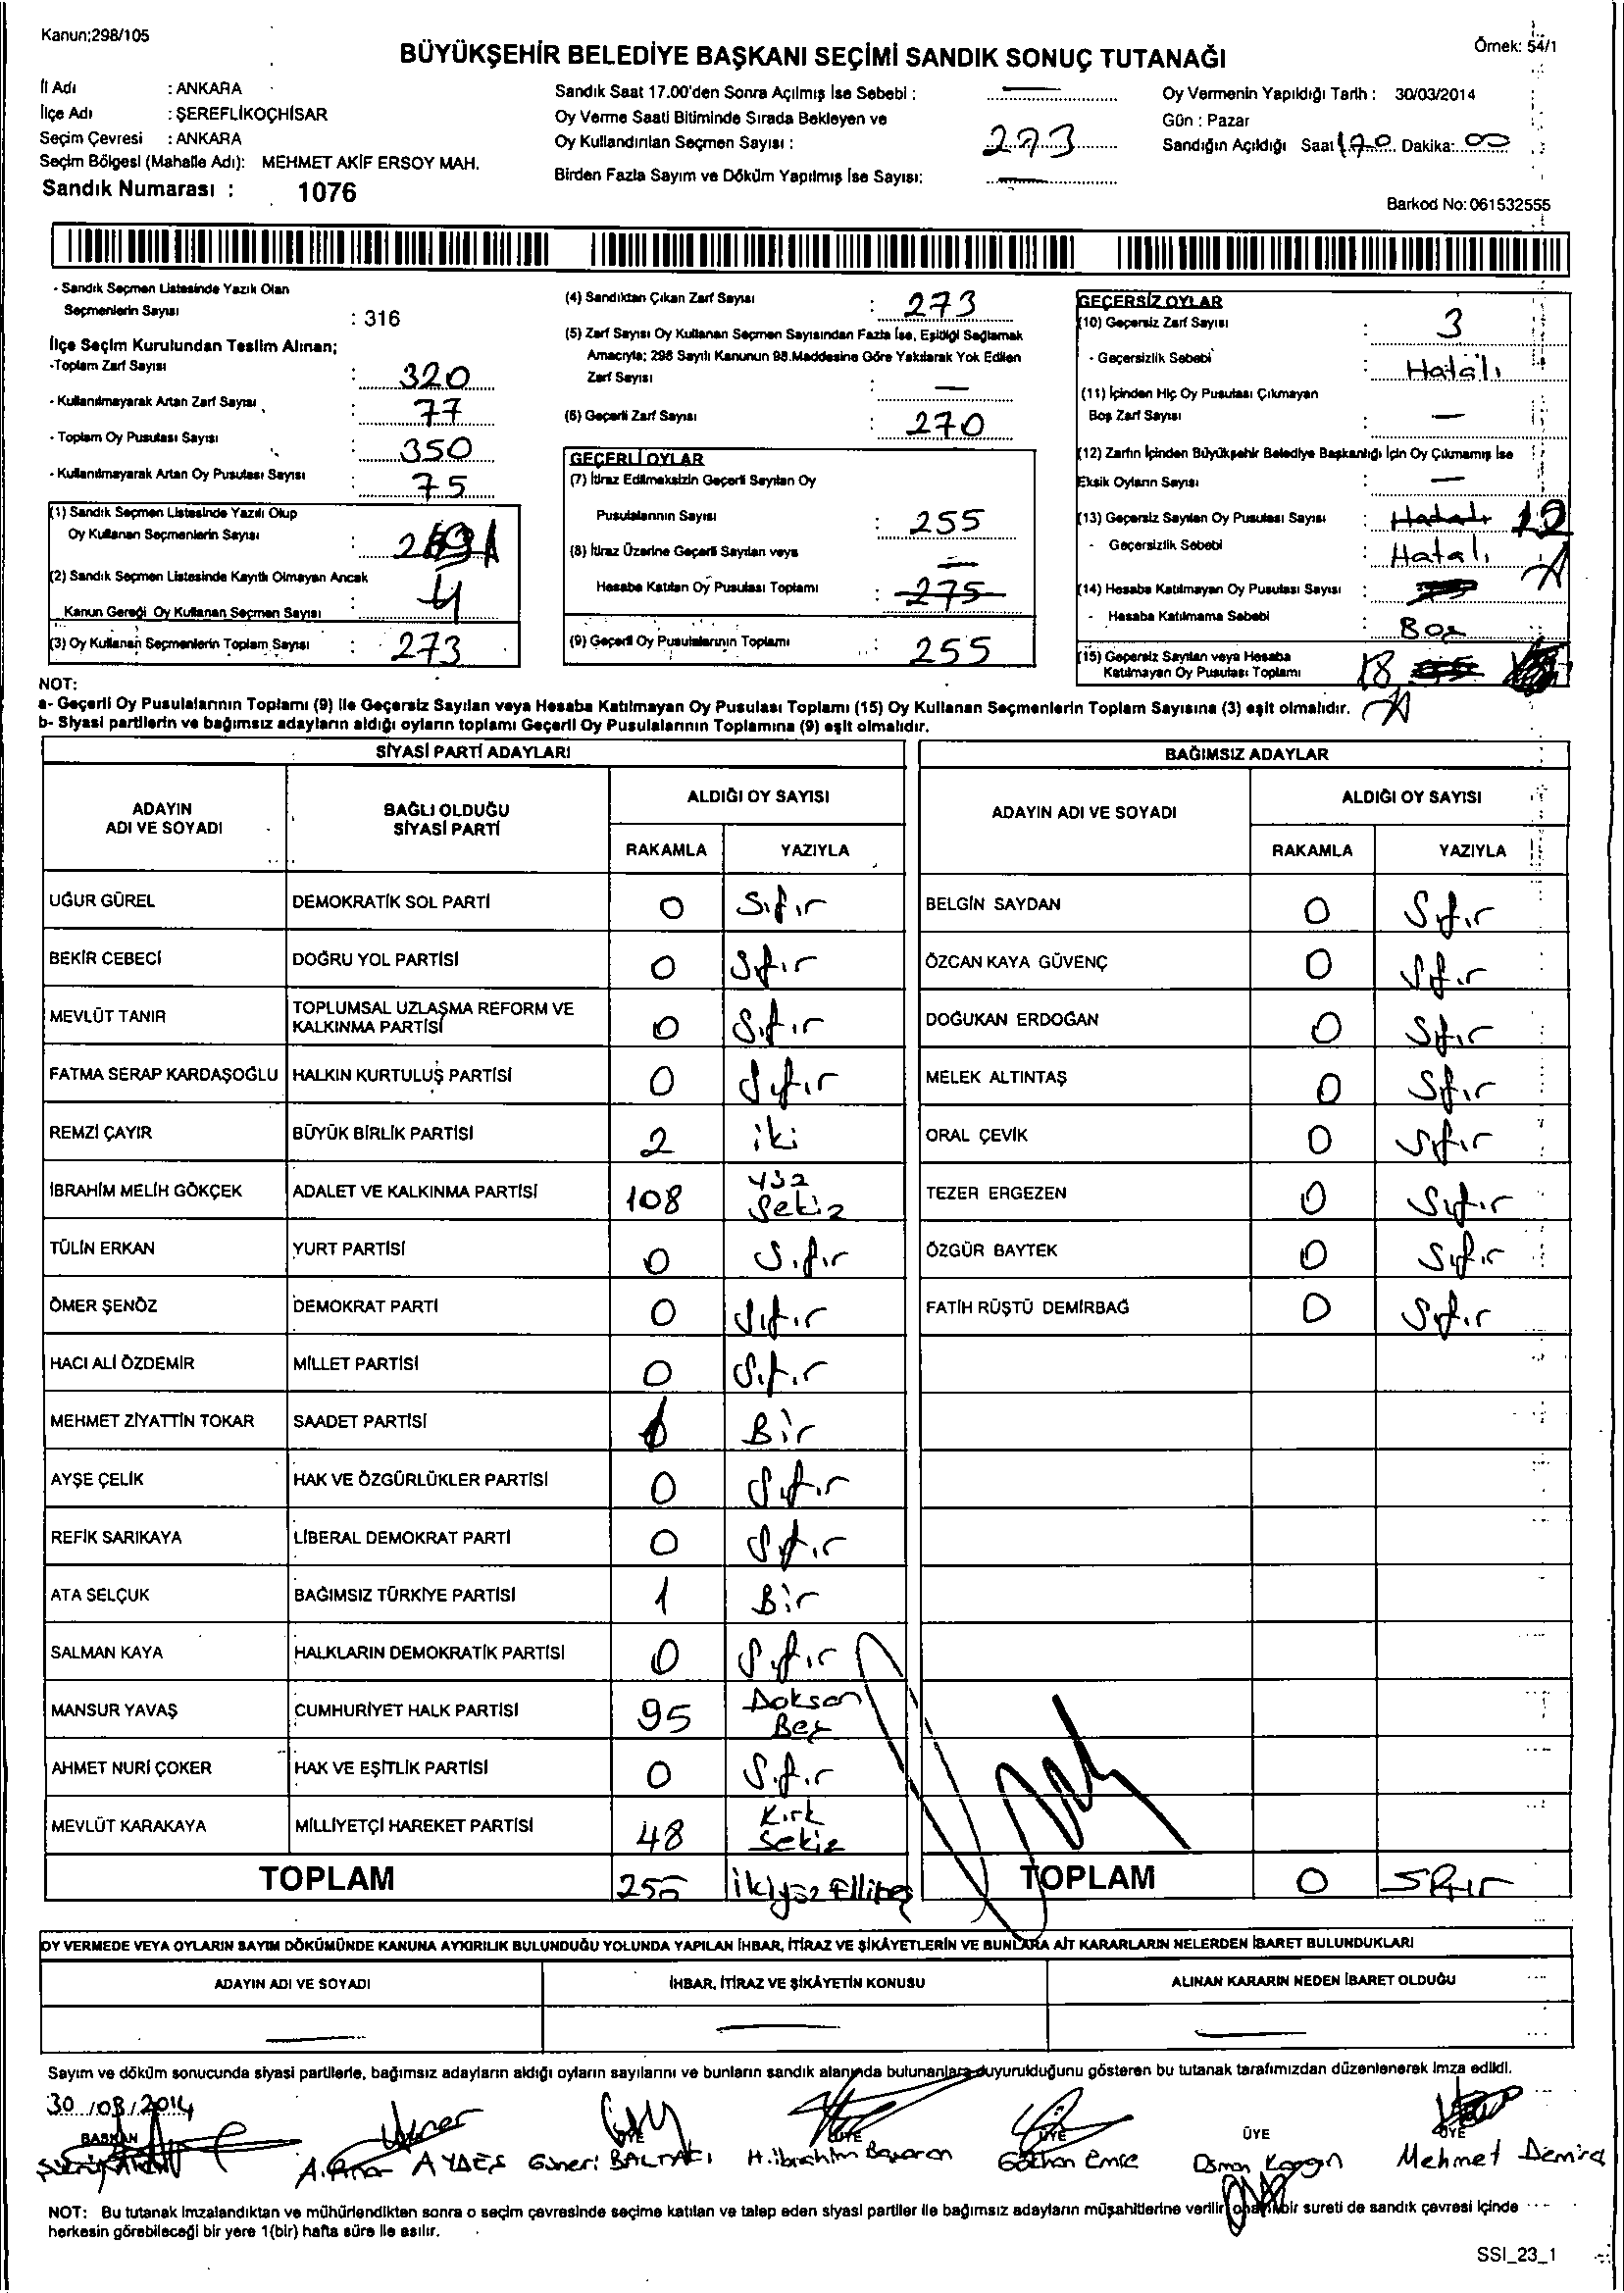 Kanun:298/105
Örnek: 54/1
BÜYÜKŞEHİR BELEDİYE BAŞKANI SEÇİMİ SANDIK SONUÇ TUTANAĞI
İl Adı : ANKARA
İlçe Adı : ŞEREFLİKOÇHİSAR
Seçim Çevresi : ANKARA
Seçim Bölgesi (Mahalle Adı): MEHMET AKİF ERSOY MAH.
Sandık Numarası : 1076
Sandık Saat 17.00'den Sonra Açılmış İse Sebebi : —
Oy Verme Saati Bitiminde Sırada Bekleyen ve
Oy Kullandırılan Seçmen Sayısı : 273
Birden Fazla Sayım ve Döküm Yapılmış İse Sayısı: —
Oy Vermenin Yapıldığı Tarih : 30/03/2014
Gün : Pazar
Sandığın Açıldığı Saat 17.0 Dakika: 00
Barkod No: 061532555
- Sandık Seçmen Listesinde Yazılı Olan
Seçmenlerin Sayısı : 316
İlçe Seçim Kurulundan Teslim Alınan;
-Toplam Zarf Sayısı : 320
- Kullanılmayarak Artan Zarf Sayısı : 77
- Toplam Oy Pusulası Sayısı : 350
- Kullanılmayarak Artan Oy Pusulası Sayısı : 75
(1) Sandık Seçmen Listesinde Yazılı Olup
Oy Kullanan Seçmenlerin Sayısı :
(2) Sandık Seçmen Listesinde Kayıtlı Olmayan Ancak
Kanun Gereği Oy Kullanan Seçmen Sayısı : 4
(3) Oy Kullanan Seçmenlerin Toplam Sayısı : 273
(4) Sandıktan Çıkan Zarf Sayısı : 273
(5) Zarf Sayısı Oy Kullanan Seçmen Sayısından Fazla İse, Eşitliği Sağlamak
Amacıyla; 298 Sayılı Kanunun 98.Maddesine Göre Yakılarak Yok Edilen
Zarf Sayısı : —
(6) Geçerli Zarf Sayısı : 270
GEÇERLİ OYLAR
(7) İtiraz Edilmeksizin Geçerli Sayılan Oy
Pusulalarının Sayısı : 255
(8) İtiraz Üzerine Geçerli Sayılan veya —
Hesaba Katılan Oy Pusulası Toplamı : 275
(9) Geçerli Oy Pusulalarının Toplamı : 255
GEÇERSİZ OYLAR
(10) Geçersiz Zarf Sayısı : 3
- Geçersizlik Sebebi : Hatalı
(11) İçinden Hiç Oy Pusulası Çıkmayan
Boş Zarf Sayısı : —
(12) Zarfın İçinden Büyükşehir Belediye Başkanlığı İçin Oy Çıkmamış İse
Eksik Oyların Sayısı : —
(13) Geçersiz Sayılan Oy Pusulası Sayısı : Hatalı
- Geçersizlik Sebebi : Hatalı
(14) Hesaba Katılmayan Oy Pusulası Sayısı :
- Hesaba Katılmama Sebebi : Boş
(15) Geçersiz Sayılan veya Hesaba
Katılmayan Oy Pusulası Toplamı : 18
NOT:
a- Geçerli Oy Pusulalarının Toplamı (9) ile Geçersiz Sayılan veya Hesaba Katılmayan Oy Pusulası Toplamı (15) Oy Kullanan Seçmenlerin Toplam Sayısına (3) eşit olmalıdır.
b- Siyasi partilerin ve bağımsız adayların aldığı oyların toplamı Geçerli Oy Pusulalarının Toplamına (9) eşit olmalıdır.
SİYASİ PARTİ ADAYLARI
ADAYIN ADI VE SOYADI BAĞLI OLDUĞU SİYASİ PARTİ ALDIĞI OY SAYISI
RAKAMLA YAZIYLA
UĞUR GÜREL DEMOKRATİK SOL PARTİ 0 Sıfır
BEKİR CEBECİ DOĞRU YOL PARTİSİ 0 Sıfır
MEVLÜT TANIR TOPLUMSAL UZLAŞMA REFORM VE KALKINMA PARTİSİ 0 Sıfır
FATMA SERAP KARDAŞOĞLU HALKIN KURTULUŞ PARTİSİ 0 Sıfır
REMZİ ÇAYIR BÜYÜK BİRLİK PARTİSİ 2 iki
İBRAHİM MELİH GÖKÇEK ADALET VE KALKINMA PARTİSİ 108 yüz Sekiz
TÜLİN ERKAN YURT PARTİSİ 0 Sıfır
ÖMER ŞENÖZ DEMOKRAT PARTİ 0 Sıfır
HACI ALİ ÖZDEMİR MİLLET PARTİSİ 0 Sıfır
MEHMET ZİYATTİN TOKAR SAADET PARTİSİ Bir
AYŞE ÇELİK HAK VE ÖZGÜRLÜKLER PARTİSİ 0 Sıfır
REFİK SARIKAYA LİBERAL DEMOKRAT PARTİ 0 Sıfır
ATA SELÇUK BAĞIMSIZ TÜRKİYE PARTİSİ 1 Bir
SALMAN KAYA HALKLARIN DEMOKRATİK PARTİSİ 0 Sıfır
MANSUR YAVAŞ CUMHURİYET HALK PARTİSİ 95 Doksan Beş
AHMET NURİ ÇOKER HAK VE EŞİTLİK PARTİSİ 0 Sıfır
MEVLÜT KARAKAYA MİLLİYETÇİ HAREKET PARTİSİ 48 Kırk Sekiz
TOPLAM 255 İkiyüz Ellibeş
BAĞIMSIZ ADAYLAR
ADAYIN ADI VE SOYADI ALDIĞI OY SAYISI
RAKAMLA YAZIYLA
BELGİN SAYDAN 0 Sıfır
ÖZCAN KAYA GÜVENÇ 0 Sıfır
DOĞUKAN ERDOĞAN 0 Sıfır
MELEK ALTINTAŞ 0 Sıfır
ORAL ÇEVİK 0 Sıfır
TEZER ERGEZEN 0 Sıfır
ÖZGÜR BAYTEK 0 Sıfır
FATİH RÜŞTÜ DEMİRBAĞ 0 Sıfır
TOPLAM 0 Sıfır
OY VERMEDE VEYA OYLARIN SAYIM DÖKÜMÜNDE KANUNA AYKIRILIK BULUNDUĞU YOLUNDA YAPILAN İHBAR, İTİRAZ VE ŞİKÂYETLERİN VE BUNLARA AİT KARARLARIN NELERDEN İBARET BULUNDUKLARI
ADAYIN ADI VE SOYADI İHBAR, İTİRAZ VE ŞİKÂYETİN KONUSU ALINAN KARARIN NEDEN İBARET OLDUĞU
— — —
Sayım ve döküm sonucunda siyasi partilerle, bağımsız adayların aldığı oyların sayılarını ve bunların sandık alanında bulunanlara duyurulduğunu gösteren bu tutanak tarafımızdan düzenlenerek imza edildi.
30/03/2014
BAŞKAN ÜYE ÜYE ÜYE ÜYE ÜYE
Güneri BALTACI H.İbrahim Başaran Gökhan Emre Osman Mehmet Demira
NOT: Bu tutanak imzalandıktan ve mühürlendikten sonra o seçim çevresinde seçime katılan ve talep eden siyasi partiler ile bağımsız adayların müşahitlerine verilir, onaylı bir sureti de sandık çevresi içinde
herkesin görebileceği bir yere 1(bir) hafta süre ile asılır.
SSI_23_1